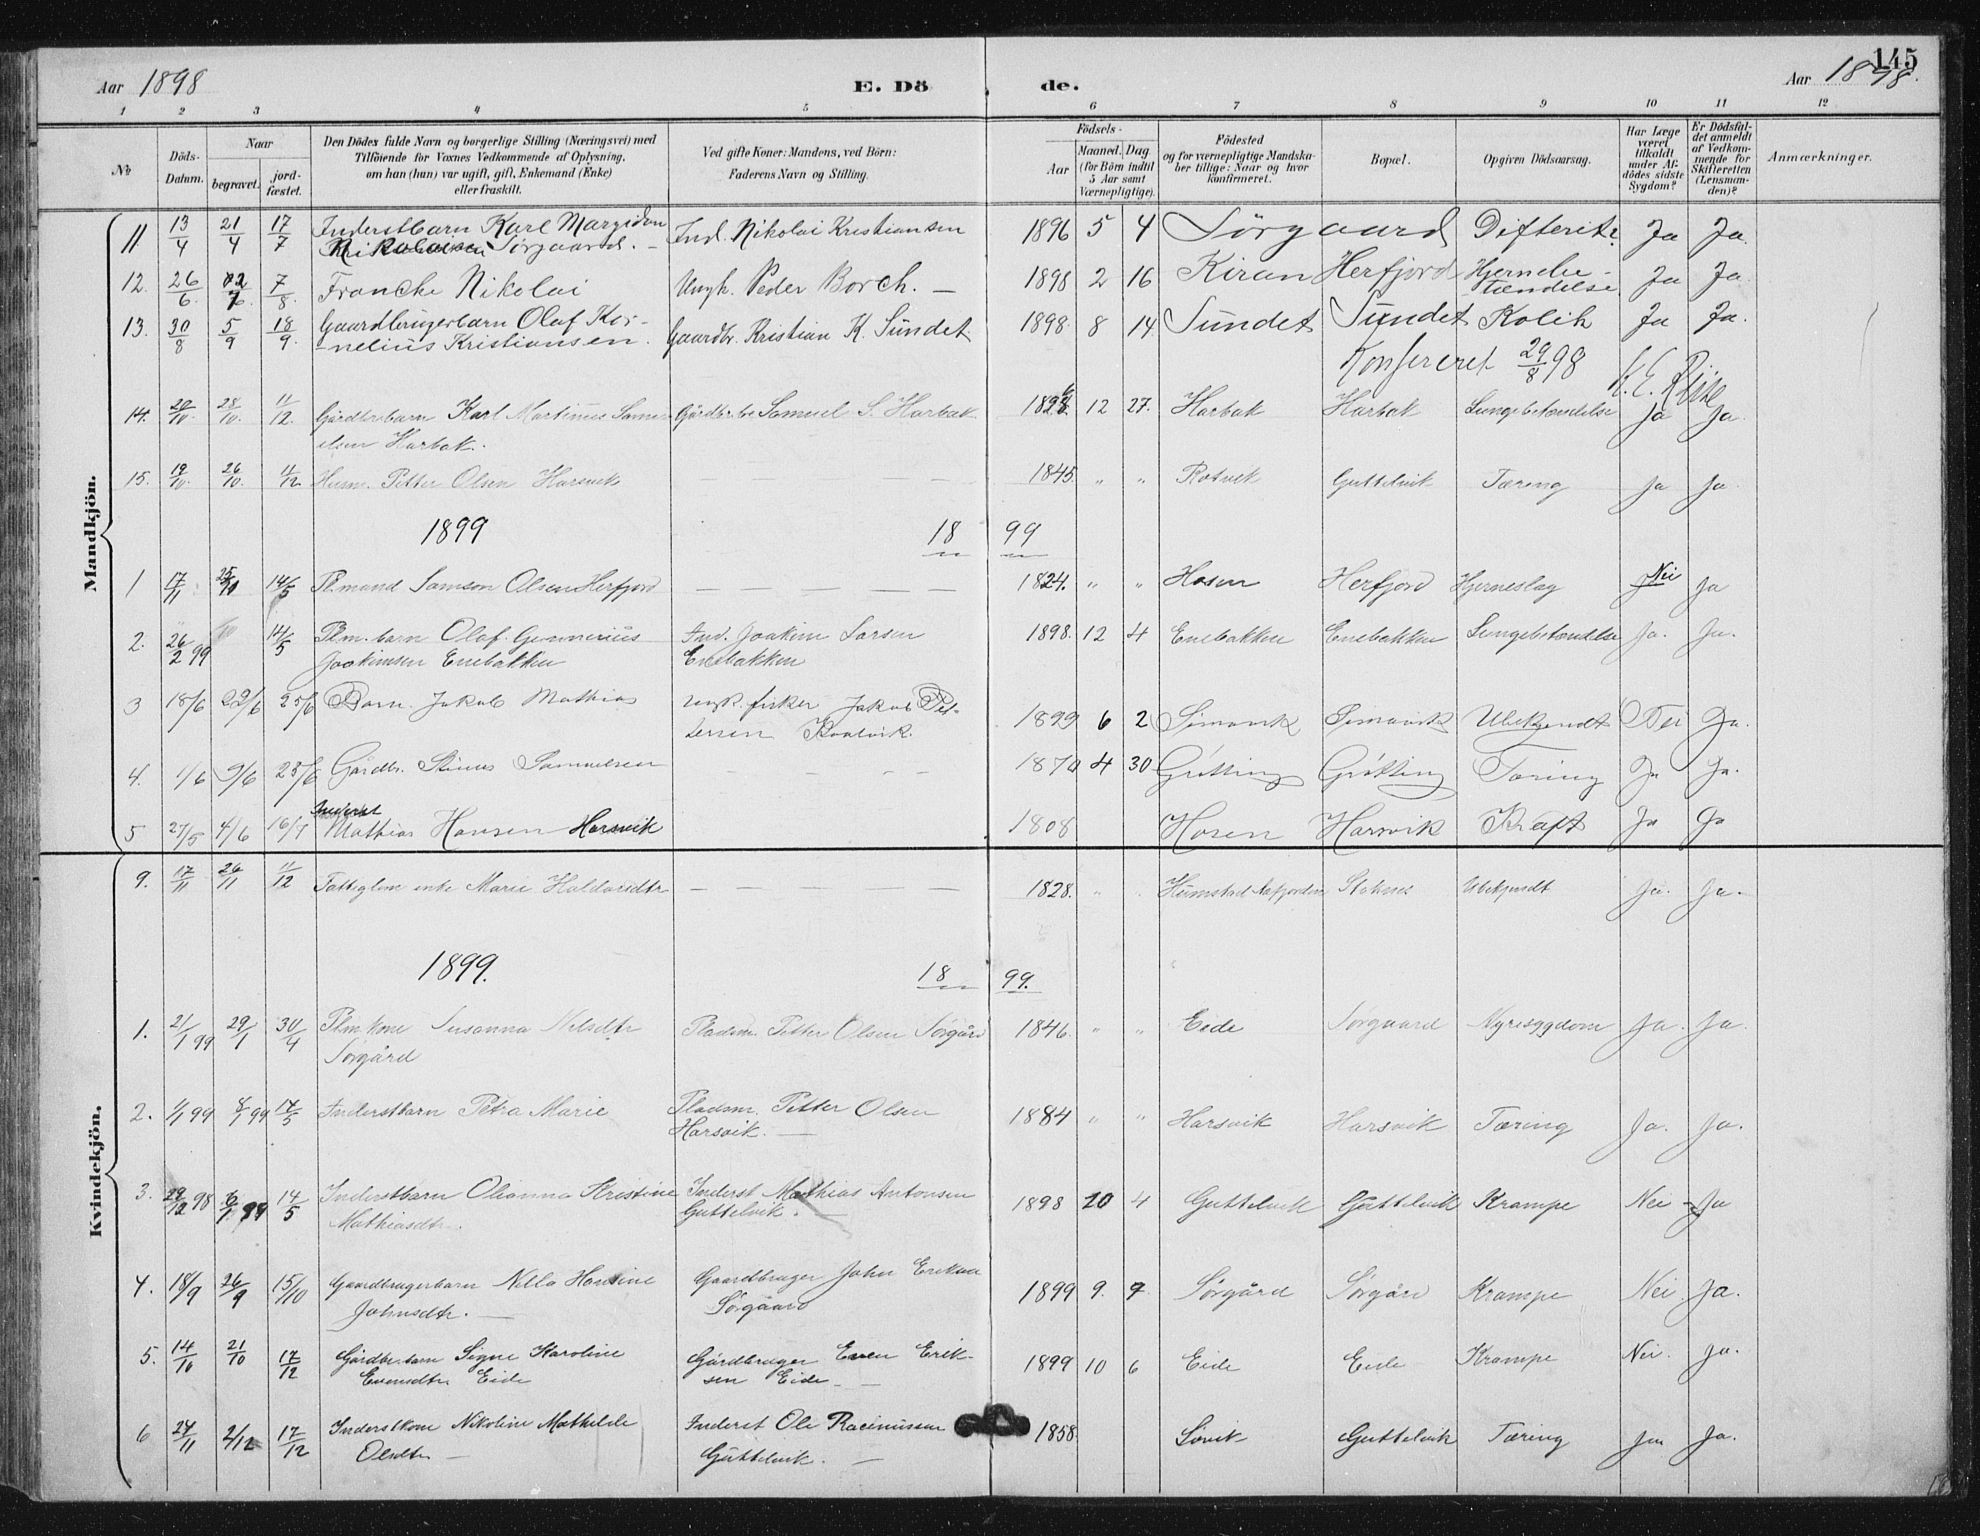 145
Aar 1898 E. Dö de. Aar 1898.
1 2 3 4 5 6 7 8 9 10 11 12
No
Döds-Datum.
Naar
begravet.
jord-fæstet.
Den Dödes fulde Navn og borgerlige Stilling (Næringsvei) med
Tilföiende for Voxnes Vedkommende af Oplysning,
om han (hun) var ugift, gift, Enkemand (Enke)
eller fraskilt.
Ved gifte Koner: Mandens, ved Börn:
Faderens Navn og Stilling.
Födsels-
Aar
Maaned. Dag
(for Börn indtil
5 Aar samt
Værnepligtige).
Födested
og for værnepligtige Mandska-
ber tillige: Naar og hvor
konfirmeret.
Bopæl.
Opgiven Dödsaarsag.
Har Læge
været
tilkaldt
under Af-
dödes sidste
Sygdom?
Er Dödsfal-
det anmeldt
af Vedkom-
mende for
Skifteretten
(Lensman-
den)?
Anmærkninger.
Mandkjön.
11 13/4 21/4 17/7 Inderstbarn Karl Margido Ind. Nikolai Kristiansen 1896 5 4 Sörgaard Difterit. Ja Ja.
Nikolaisen Sörgaard. –
12. 26/6 7/8 Francke Nikolai Ungk. Peder Borch. – 1898 2 16 Kiran Herfjord Hjernebe-
tændelse Ja Ja
13. 30/8 5/9 18/9 Gaardbrugerbarn Olaf Kor- Gaardbr. Kristian K. Sundet 1898 8 14 Sundet Sundet Kolik Ja Ja.
nelius Kristiansen.
Konfereret 29/8 98
14. 20/10 28/10 11/12 Gårdbrbarn Karl Martinus Samu- Gårdbr. Samuel S. Harbak 12 27. Harbak Harbak Lungebetændelse Ja Ja.
elsen Harbak.
15. 19/10 26/10 11/12 Husm. Petter Olsen Harsvik – – – 1845 " " Rotvik Guttelvik Tæring Ja Ja.
1899 18 99
1 17/11 14/5 Plmand Samson Olsen Herfjord – – – – 1824. " " Hosen Herfjord Hjerneslag Nei Ja
2. 26/2 99 14/5 Plm. barn Olaf Gunnerius Ind. Joakim Larsen 1898. 12 4 Enebakken Enebakken Lungebetændelse Ja. Ja.
Joakimsen Enebakken Enebakken
3 18/6 22/6 25/6 Barn. Jakob Mathias ungk. fisker Jakob Pet- 1899 6 2 Simavik Simavik Ubekjendt Nei Ja.
tersen
4. 1/6 9/6 25/6 Gårdbr. Samuelsen – – – 1870 4 30 Grötting Grötting Tæring Ja Ja.
5 27/5 4/6 16/7 Inderst Mathias Hansen Harsvik 1808 Hosen Harsvik Kræft Ja Ja
Kvindekjön.
9. 17/11 26/11 11/12 Fattiglem enke Marie Haldorsdtr – – – – 1828. " Humstad Aafjorden Stoknes Ubekjendt Ja. Ja.
1899. 18 99.
1. 21/1 99 29/1 30/4 Plm kone Susanna Nilsdtr Pladsm. Petter Olsen Sörgård 1846. " " Eide Sörgaard Nyresygdom Ja. Ja.
Sörgård
2. 1/1 99 8/1 99 14/5 Inderstbarn Petra Marie Pladsm. Petter Olsen 1884 " " Harsvik Harsvik Tæring Ja. Ja.
Harsvik. –
3. 29/12 98 14/5 Inderstbarn Olianna Kristine Inderst Mathias Antonsen 1898 10 4 Guttelvik Guttelvik Krampe Nei – Ja
Mathiasdtr. Guttelvik. –
4. 18/9 26/9 15/10 Gaardbrugerbarn Nella Hansine Gaardbruger John Eriksen 1899 9. 7 Sörgård Sörgård Krampe Nei. Ja.
Johnsdtr. – Sörgaard
5. 14/10 21/10 17/12 Gårdbrbarn Signe Karoline Gårdbruger Even Erik- 1899 10 6 Eide Eide Krampe Nei. Ja.
Evensdtr Eide sen Eide –
6 24/11 2/12 17/12 Inderstkone Nikoline Mathilde Inderst Ole Rasmussen 1858 Sovik Guttelvik Tæring Ja Ja.
Olsdtr – Guttelvik. –